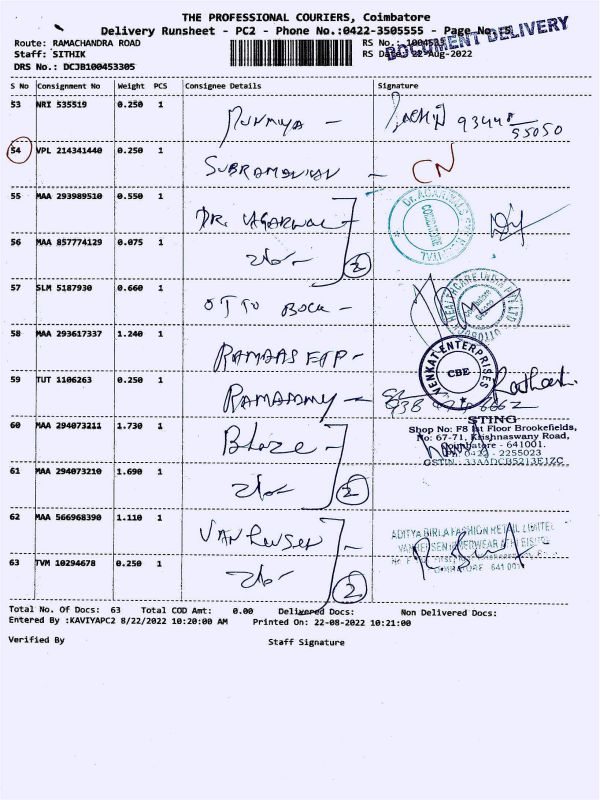 THE PROFESSIONAL COURIERS, Coimbatore
Delivery Runsheet - PC2 - Phone No.:0422-3505555 - Page No.:5
DOCUMENT DELIVERY
Route: RAMACHANDRA ROAD
RS No.: 1004533
Staff: SITHIK
RS Date: 22-Aug-2022
DRS No.: DCJB100453305
S No Consignment No Weight PCS Consignee Details Signature
53 NRI 535519 0.250 1
93448
55050
54 VPL 214341440 0.250 1
SUBRAMANIAN - CN
55 MAA 293989510 0.550 1
DR. AGARWAL
56 MAA 857774129 0.075 1
2
57 SLM 5187930 0.660 1
OTTO BOCK -
58 MAA 293617337 1.240 1
VENKAT-ENTERPRISES
CBE
59 TUT 1106263 0.250 1
RAMASAMY -
60 MAA 294073211 1.730 1
Blaze -
STING
Shop No: F8 Ist Floor Brookefields,
No: 67-71, Krishnaswamy Road,
Coimbatore - 641001.
Ph: 0422 - 2255023
GSTIN - 33AADCB5213E1ZC
61 MAA 294073210 1.690 1
2
62 MAA 566968390 1.110 1
VAN HEUSEN
ADITYA BIRLA FASHION RETAIL LIMITED
63 TVM 10294678 0.250 1
2
Total No. Of Docs: 63 Total COD Amt: 0.00 Delivered Docs: Non Delivered Docs:
Entered By :KAVIYAPC2 8/22/2022 10:20:00 AM Printed On: 22-08-2022 10:21:00
Verified By Staff Signature